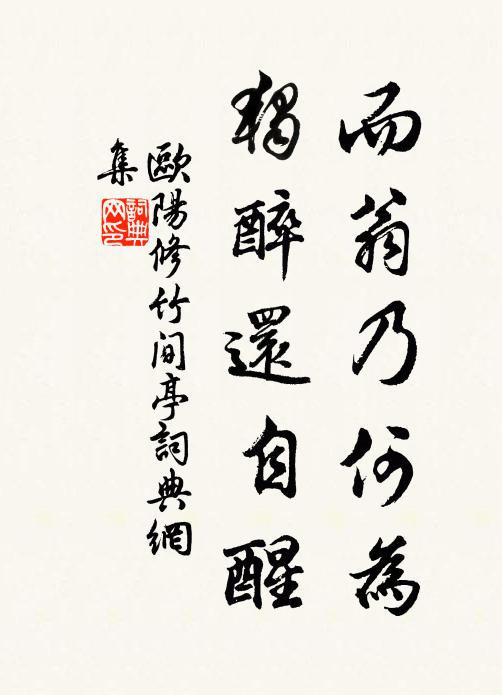 而翁乃何為
獨醉還自醒
歐陽修竹间亭詞典網
集
詞典
网印